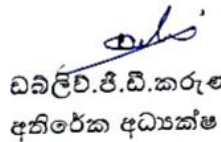 ඩබ්ලිව්.ජී.ඩී.කරුණ
අතිරේක අධ්‍යක්ෂ